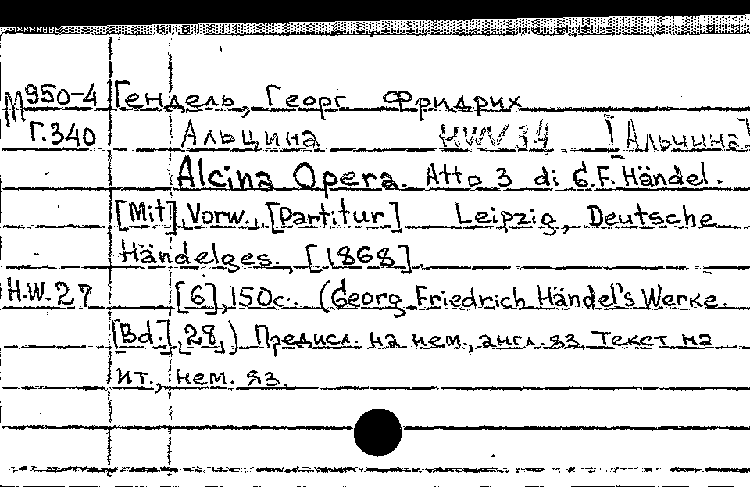 М950-4 Гендель, Георг Фридрих
Г.340 Альцина HWV 34 [Альчина]
Alcina Opera. Atto 3 di G.F. Händel.
[Mit] Vorw., [Partitur] Leipzig, Deutsche
Händelges., [1868].
H.W. 27 [6], 150с. (Georg Friedrich Händel's Werke.
[Bd.], 28,) Предисл. на нем., англ. яз. Текст на
ит., нем. яз.